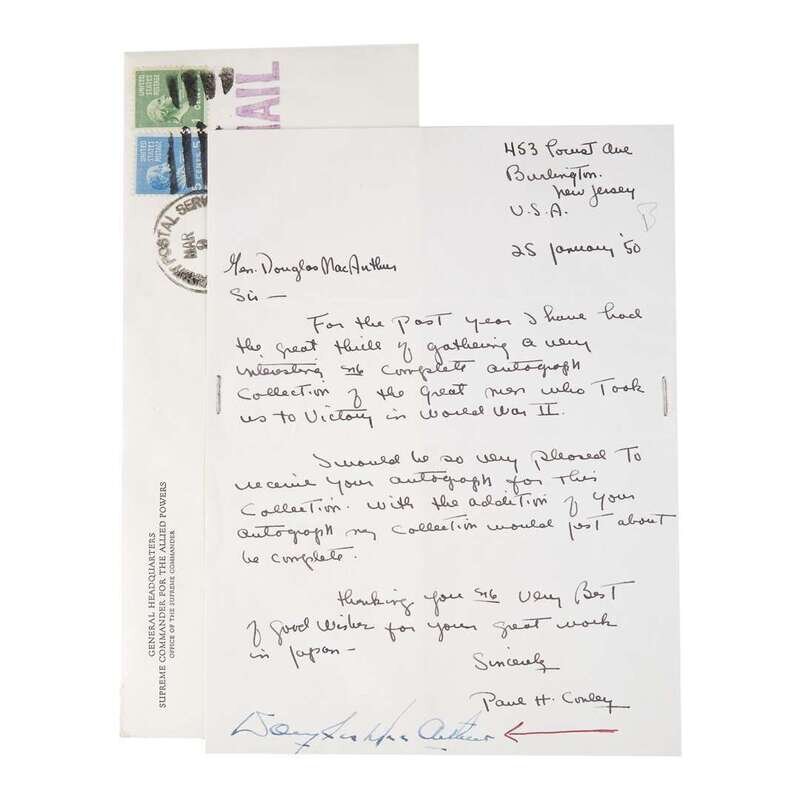 UNITED STATES POSTAGE
1 CENT
UNITED STATES POSTAGE
5 CENTS 5
MAIL
POSTAL SERV
MAR
9
GENERAL HEADQUARTERS
SUPREME COMMANDER FOR THE ALLIED POWERS
OFFICE OF THE SUPREME COMMANDER
453 Locust Ave
Burlington.
New Jersey
U.S.A.
B
25 January '50
Gen. Douglas MacArthur
Sir —
For the past year I have had
the great thrill of gathering a very
interesting & complete autograph
Collection of the great men who Took
us to Victory in World War II.
I would be so very pleased to
receive your autograph for this
Collection. With the addition of your
autograph my collection would just about
be complete.
Thanking you & very Best
of good wishes for your great work
in Japan —
Sincerely
Paul H. Conley
Douglas MacArthur